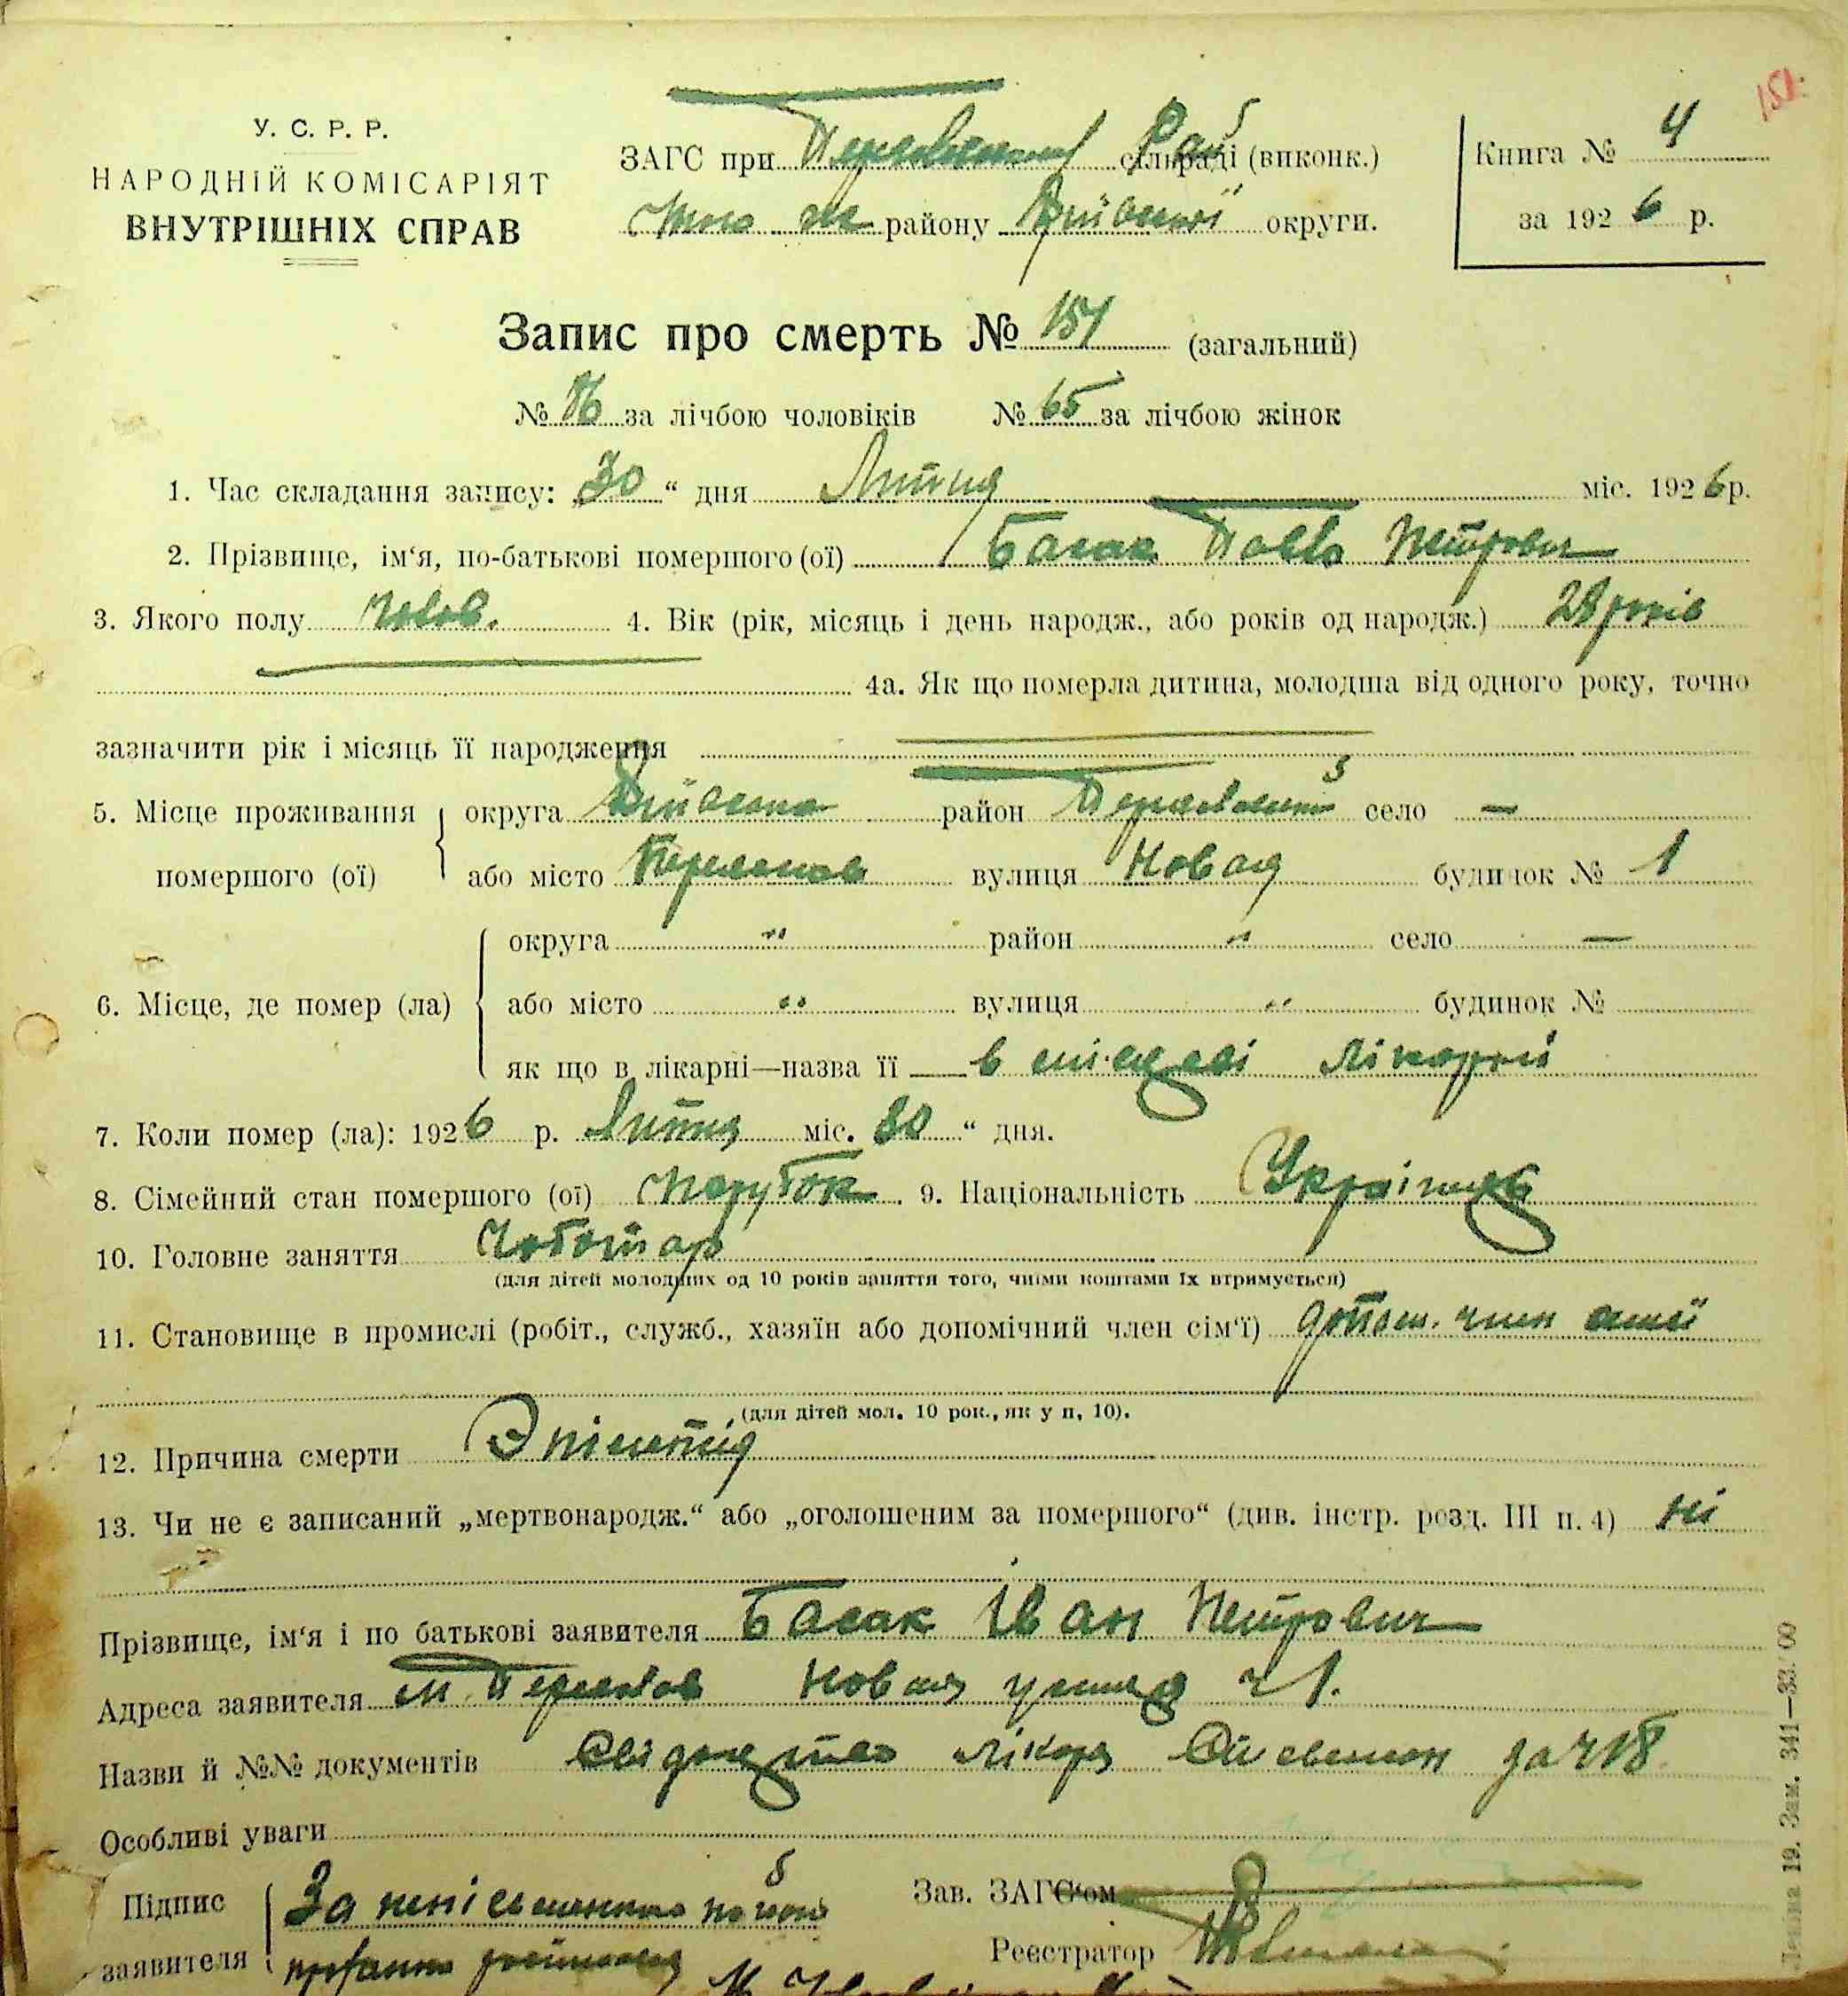 151.
У. С. Р. Р.
НАРОДНІЙ КОМІСАРІЯТ
ВНУТРІШНІХ СПРАВ
ЗАГС при сільраді (виконк.)
того ж району Київської округи.
Книга № 4
за 1926 р.
Запис про смерть № 151 (загальний)
№ 86 за лічбою чоловіків № 65 за лічбою жінок
1. Час складання запису: „30“ дня Липця міс. 1926 р.
2. Прізвище, ім‘я, по-батькові помершого (ої) Басак Павло Петрович
3. Якого полу чолов. 4. Вік (рік, місяць і день народж., або років од народж.) 28 років
4а. Як що померла дитина, молодша від одного року, точно
зазначити рік і місяць її народження
5. Місце проживання помершого (ої) округа Київська район село —
або місто вулиця Новая будинок № 1
6. Місце, де помер (ла) округа " район " село —
або місто " вулиця " будинок №
як що в лікарні—назва її в лікарні
7. Коли помер (ла): 1926 р. Липця міс. 30 “ дня.
8. Сімейний стан помершого (ої) парубок 9. Національність Українець
10. Головне заняття Чоботар
(для дітей молодших од 10 років заняття того, чиїми коштами їх втримується)
11. Становище в промислі (робіт., служб., хазяїн або допомічний член сім‘ї) допом. член сімї
(для дітей мол. 10 рок., як у п, 10).
12. Причина смерти Эпілепсія
13. Чи не є записаний „мертвонародж.“ або „оголошеним за помершого“ (див. інстр. розд. III п. 4) ні
Прізвище, ім‘я і по батькові заявителя Басак Іван Петрович
Адреса заявителя м. Новая улиця ч 1.
Назви й №№ документів Свідоцтво лікаря за ч 18
Особливі уваги
Підпис заявителя За
Зав. ЗАГС‘ом
Реєстратор
19. Зам. 341—33.000